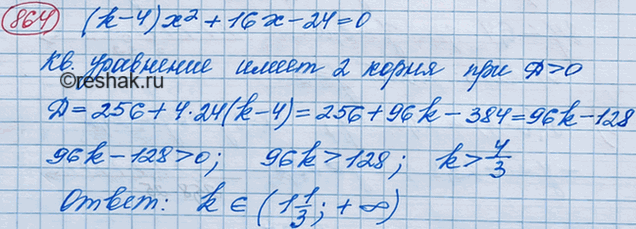 864 (k-4)x² + 16x - 24 = 0
Кв. уравнение имеет 2 корня при D>0
©reshak.ru
D = 256 + 4·24(k-4) = 256 + 96k - 384 = 96k - 128
96k - 128 > 0; 96k > 128; k > 4/3
Ответ: k ∈ (1 1/3; +∞)